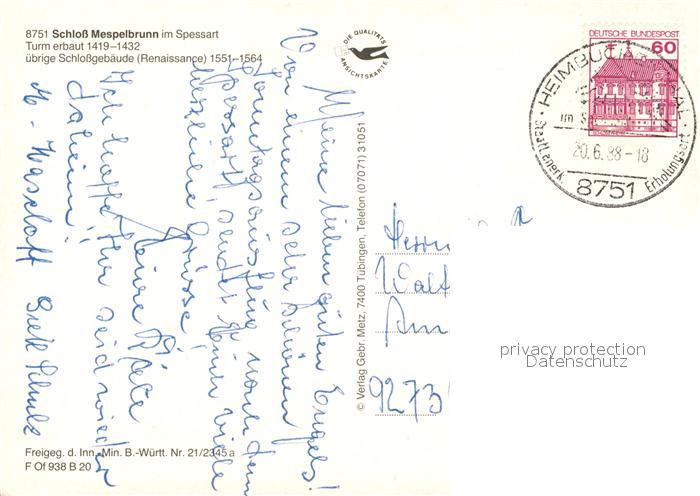 8751 Schloß Mespelbrunn im Spessart
Turm erbaut 1419–1432
übrige Schloßgebäude (Renaissance) 1551–1564
DIE QUALITÄTS
ANSICHTSKARTE
DEUTSCHE BUNDESPOST
60
HEIMBUCHENTAL
im S
20.6.88-18
8751
Staatl. anerk. Erholungsort
Meine lieben guten Engels!
Von einem sehr schönen
Sonntagsausflug nach dem
Spessart sendet Euch viele
herzliche Grüsse
Eure
Ich hoffe Ihr seid wieder
daheim!
© Verlag Gebr. Metz, 7400 Tübingen, Telefon (07071) 31051
Herrn
Walt
Am
9273
privacy protection
Datenschutz
Freigeg. d. Inn. Min. B.-Württ. Nr. 21/2345 a
F Of 938 B 20